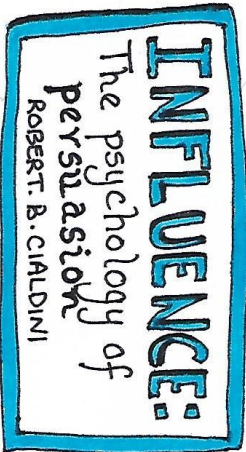 INFLUENCE:
The psychology of
persuasion
ROBERT. B. CIALDINI